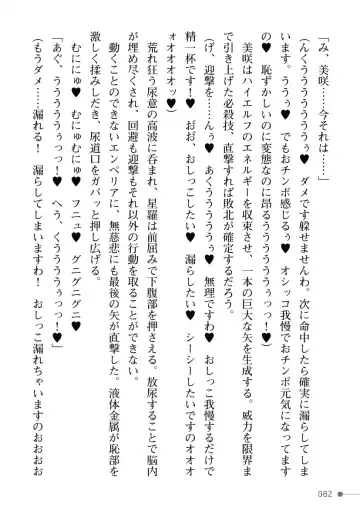 「み、美咲……今それは……」
(んくううううううぅ♥　ダメです躱せませんわ。次に命中したら確実に漏らしてしま
います。ううぅ♥　でもおチンポ感じるぅ♥　オシッコ我慢でおチンポ元気になってます
わ♥　恥ずかしいのに変態なのに昂るうううううぅぅっっ！♥)
美咲はハイエルフのエネルギーを収束させ、一本の巨大な矢を生成する。威力を限界ま
で引き上げた必殺技、直撃すれば敗北が確定するだろう。
(げ、迎撃を……んぅぅ♥　あくうううううぅ♥　無理ですわ♥　おしっこ我慢するだけで
精一杯です！♥　おお、おしっこしたい♥　漏らしたい♥　シーシーしたいですのオオオオ
ォオオオオッ♥)
荒れ狂う尿意の高波に呑まれ、星羅は前屈みで下腹部を押さえる。放尿することで脳内
が埋め尽くされ、回避も迎撃もそれ以外の行動を取ることができない。
動くことのできないエンペリアに、無慈悲にも最後の矢が直撃した。液体金属が恥部を
激しく揉みしだき、尿道口をガバッと押し広げる。
むにに♥　むにゅむにゅ♥　フニュ♥　グニグニグニ♥
「あぐ、うううううぅっっ！♥　へう、くうううぅぅっっ！♥」
(もうダメ……漏れる！　漏らしてしまいますわ！　おしっこ漏れちゃいますのおおおお
082